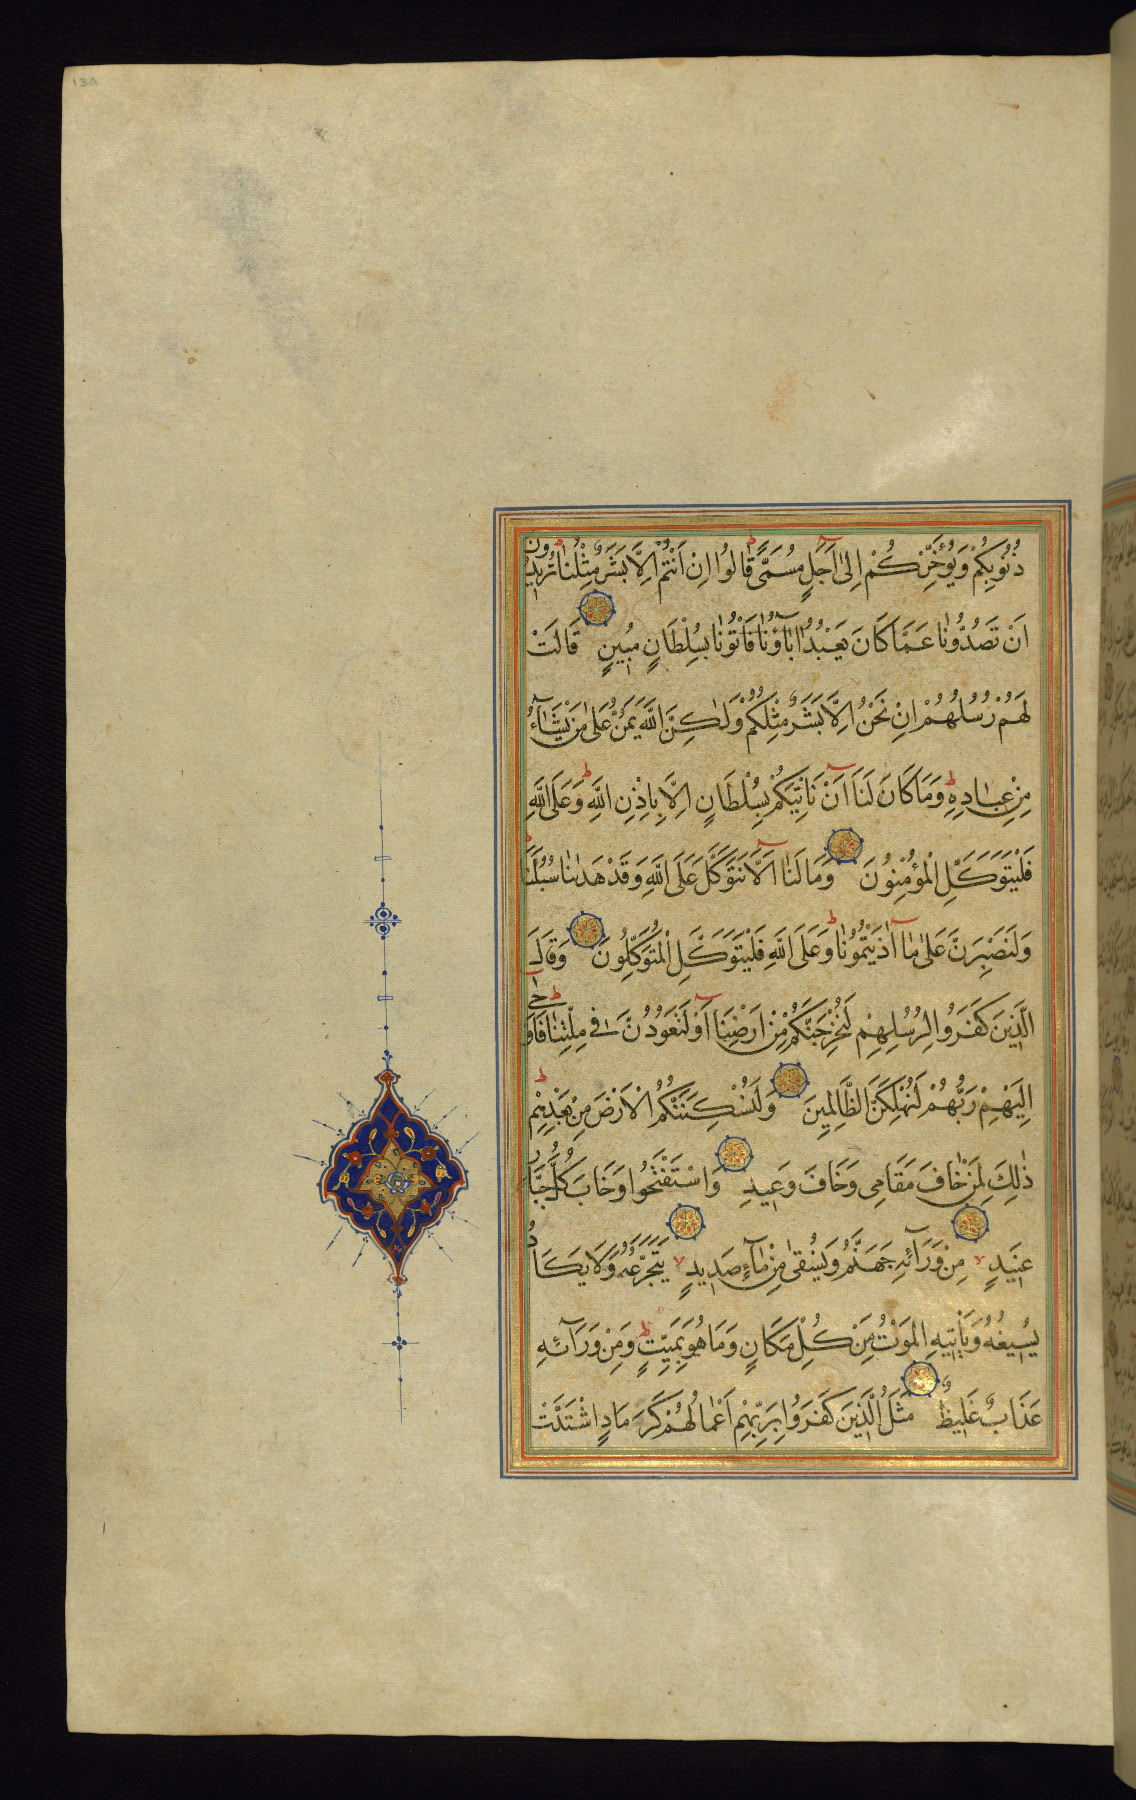 ذُنُوبِكُمْ وَيُؤَخِّرَكُمْ اِلٰى اَجَلٍ مُسَمًّى قَالُوا اِنْ اَنْتُمْ اِلَّا بَشَرٌ مِثْلُنَا تُرِيدُونَ
اَنْ تَصُدُّونَا عَمَّا كَانَ يَعْبُدُ اٰبَآؤُنَا فَأْتُونَا بِسُلْطَانٍ مُبِينٍ قَالَتْ
لَهُمْ رُسُلُهُمْ اِنْ نَحْنُ اِلَّا بَشَرٌ مِثْلُكُمْ وَلٰكِنَّ اللّٰهَ يَمُنُّ عَلٰى مَنْ يَشَآءُ
مِنْ عِبَادِهِ وَمَا كَانَ لَنَا اَنْ نَأْتِيَكُمْ بِسُلْطَانٍ اِلَّا بِاِذْنِ اللّٰهِ وَعَلَى اللّٰهِ
فَلْيَتَوَكَّلِ الْمُؤْمِنُونَ وَمَا لَنَا اَلَّا نَتَوَكَّلَ عَلَى اللّٰهِ وَقَدْ هَدٰينَا سُبُلَنَا
وَلَنَصْبِرَنَّ عَلٰى مَا اٰذَيْتُمُونَا وَعَلَى اللّٰهِ فَلْيَتَوَكَّلِ الْمُتَوَكِّلُونَ وَقَالَ
الَّذِينَ كَفَرُوا لِرُسُلِهِمْ لَنُخْرِجَنَّكُمْ مِنْ اَرْضِنَا اَوْ لَتَعُودُنَّ فِي مِلَّتِنَا فَاَوْحٰى
اِلَيْهِمْ رَبُّهُمْ لَنُهْلِكَنَّ الظَّالِمِينَ وَلَنُسْكِنَنَّكُمُ الْاَرْضَ مِنْ بَعْدِهِمْ
ذٰلِكَ لِمَنْ خَافَ مَقَامِي وَخَافَ وَعِيدِ وَاسْتَفْتَحُوا وَخَابَ كُلُّ جَبَّارٍ
عَنِيدٍ مِنْ وَرَآئِهِ جَهَنَّمُ وَيُسْقٰى مِنْ مَآءٍ صَدِيدٍ يَتَجَرَّعُهُ وَلَا يَكَادُ
يُسِيغُهُ وَيَأْتِيهِ الْمَوْتُ مِنْ كُلِّ مَكَانٍ وَمَا هُوَ بِمَيِّتٍ وَمِنْ وَرَآئِهِ
عَذَابٌ غَلِيظٌ مَثَلُ الَّذِينَ كَفَرُوا بِرَبِّهِمْ اَعْمَالُهُمْ كَرَمَادٍ اشْتَدَّتْ